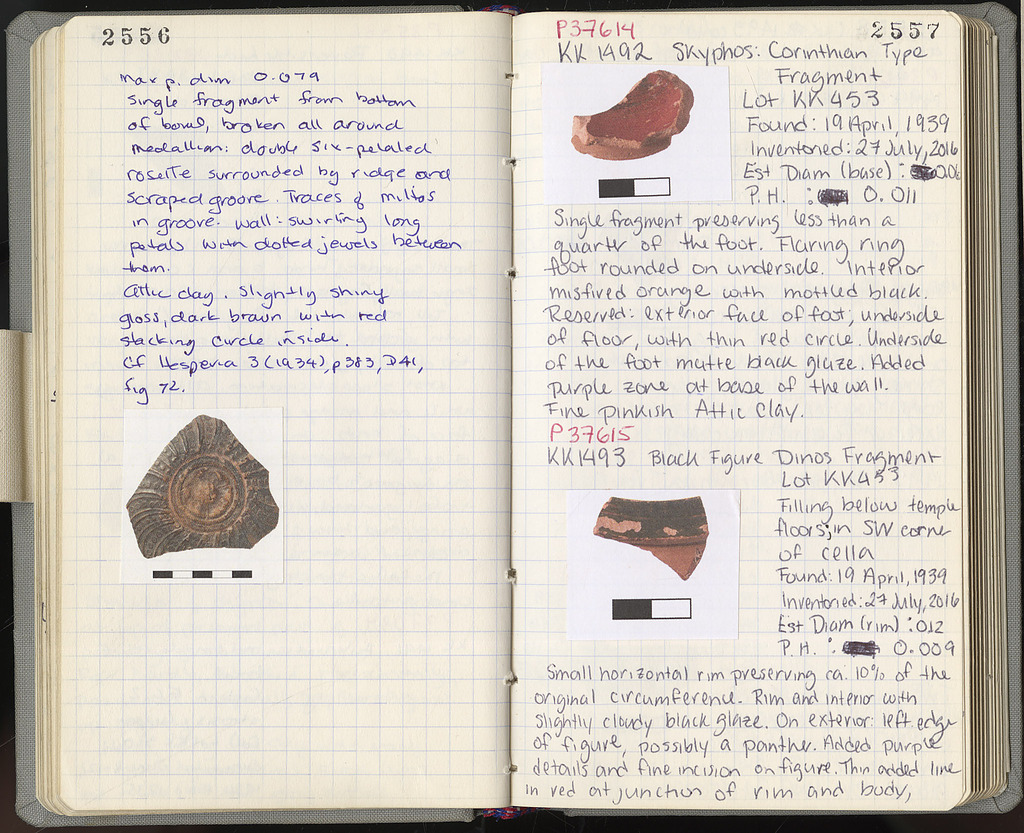 2556
max p. dim 0.079
Single fragment from bottom
of bowl, broken all around
Medallion: double six-petaled
rosette surrounded by ridge and
scraped groove. Traces of miltos
in groove. wall: swirling long
petals with dotted jewels between
them.
Attic clay. Slightly shiny
gloss, dark brown with red
stacking circle inside.
Cf Hesperia 3 (1934), p 383, D41,
fig 72.
2557
P37614
KK 1492 Skyphos: Corinthian Type
Fragment
Lot KK453
Found: 19 April, 1939
Inventoried: 27 July, 2016
Est Diam (base) :
P. H. : 0.011
Single fragment preserving less than a
quarter of the foot. Flaring ring
foot rounded on underside. Interior
misfired orange with mottled black.
Reserved: exterior face of foot; underside
of floor, with thin red circle. Underside
of the foot matte black glaze. Added
purple zone at base of the wall.
Fine pinkish Attic Clay.
P37615
KK1493 Black Figure Dinos Fragment
Lot KK453
Filling below temple
floors; in SW corner
of cella
Found: 19 April, 1939
Inventoried: 27 July, 2016
Est Diam (rim) : 012
P. H. : 0.009
Small horizontal rim preserving ca. 10% of the
original circumference. Rim and interior with
slightly cloudy black glaze. On exterior: left edge
of figure, possibly a panther. Added purple
details and fine incision on figure. Thin added line
in red at junction of rim and body,